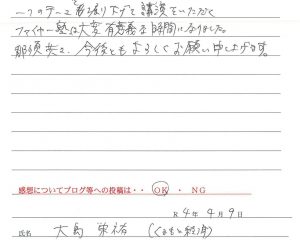 一つのテーマを掘り下げて講演をいただく
ファイヤー塾は大変有意義な時間になりました。
今後ともよろしくお願い申し上げます。
感想についてブログ等への投稿は・・ OK ・ NG
R4年4月9日
氏名 大島 栄裕